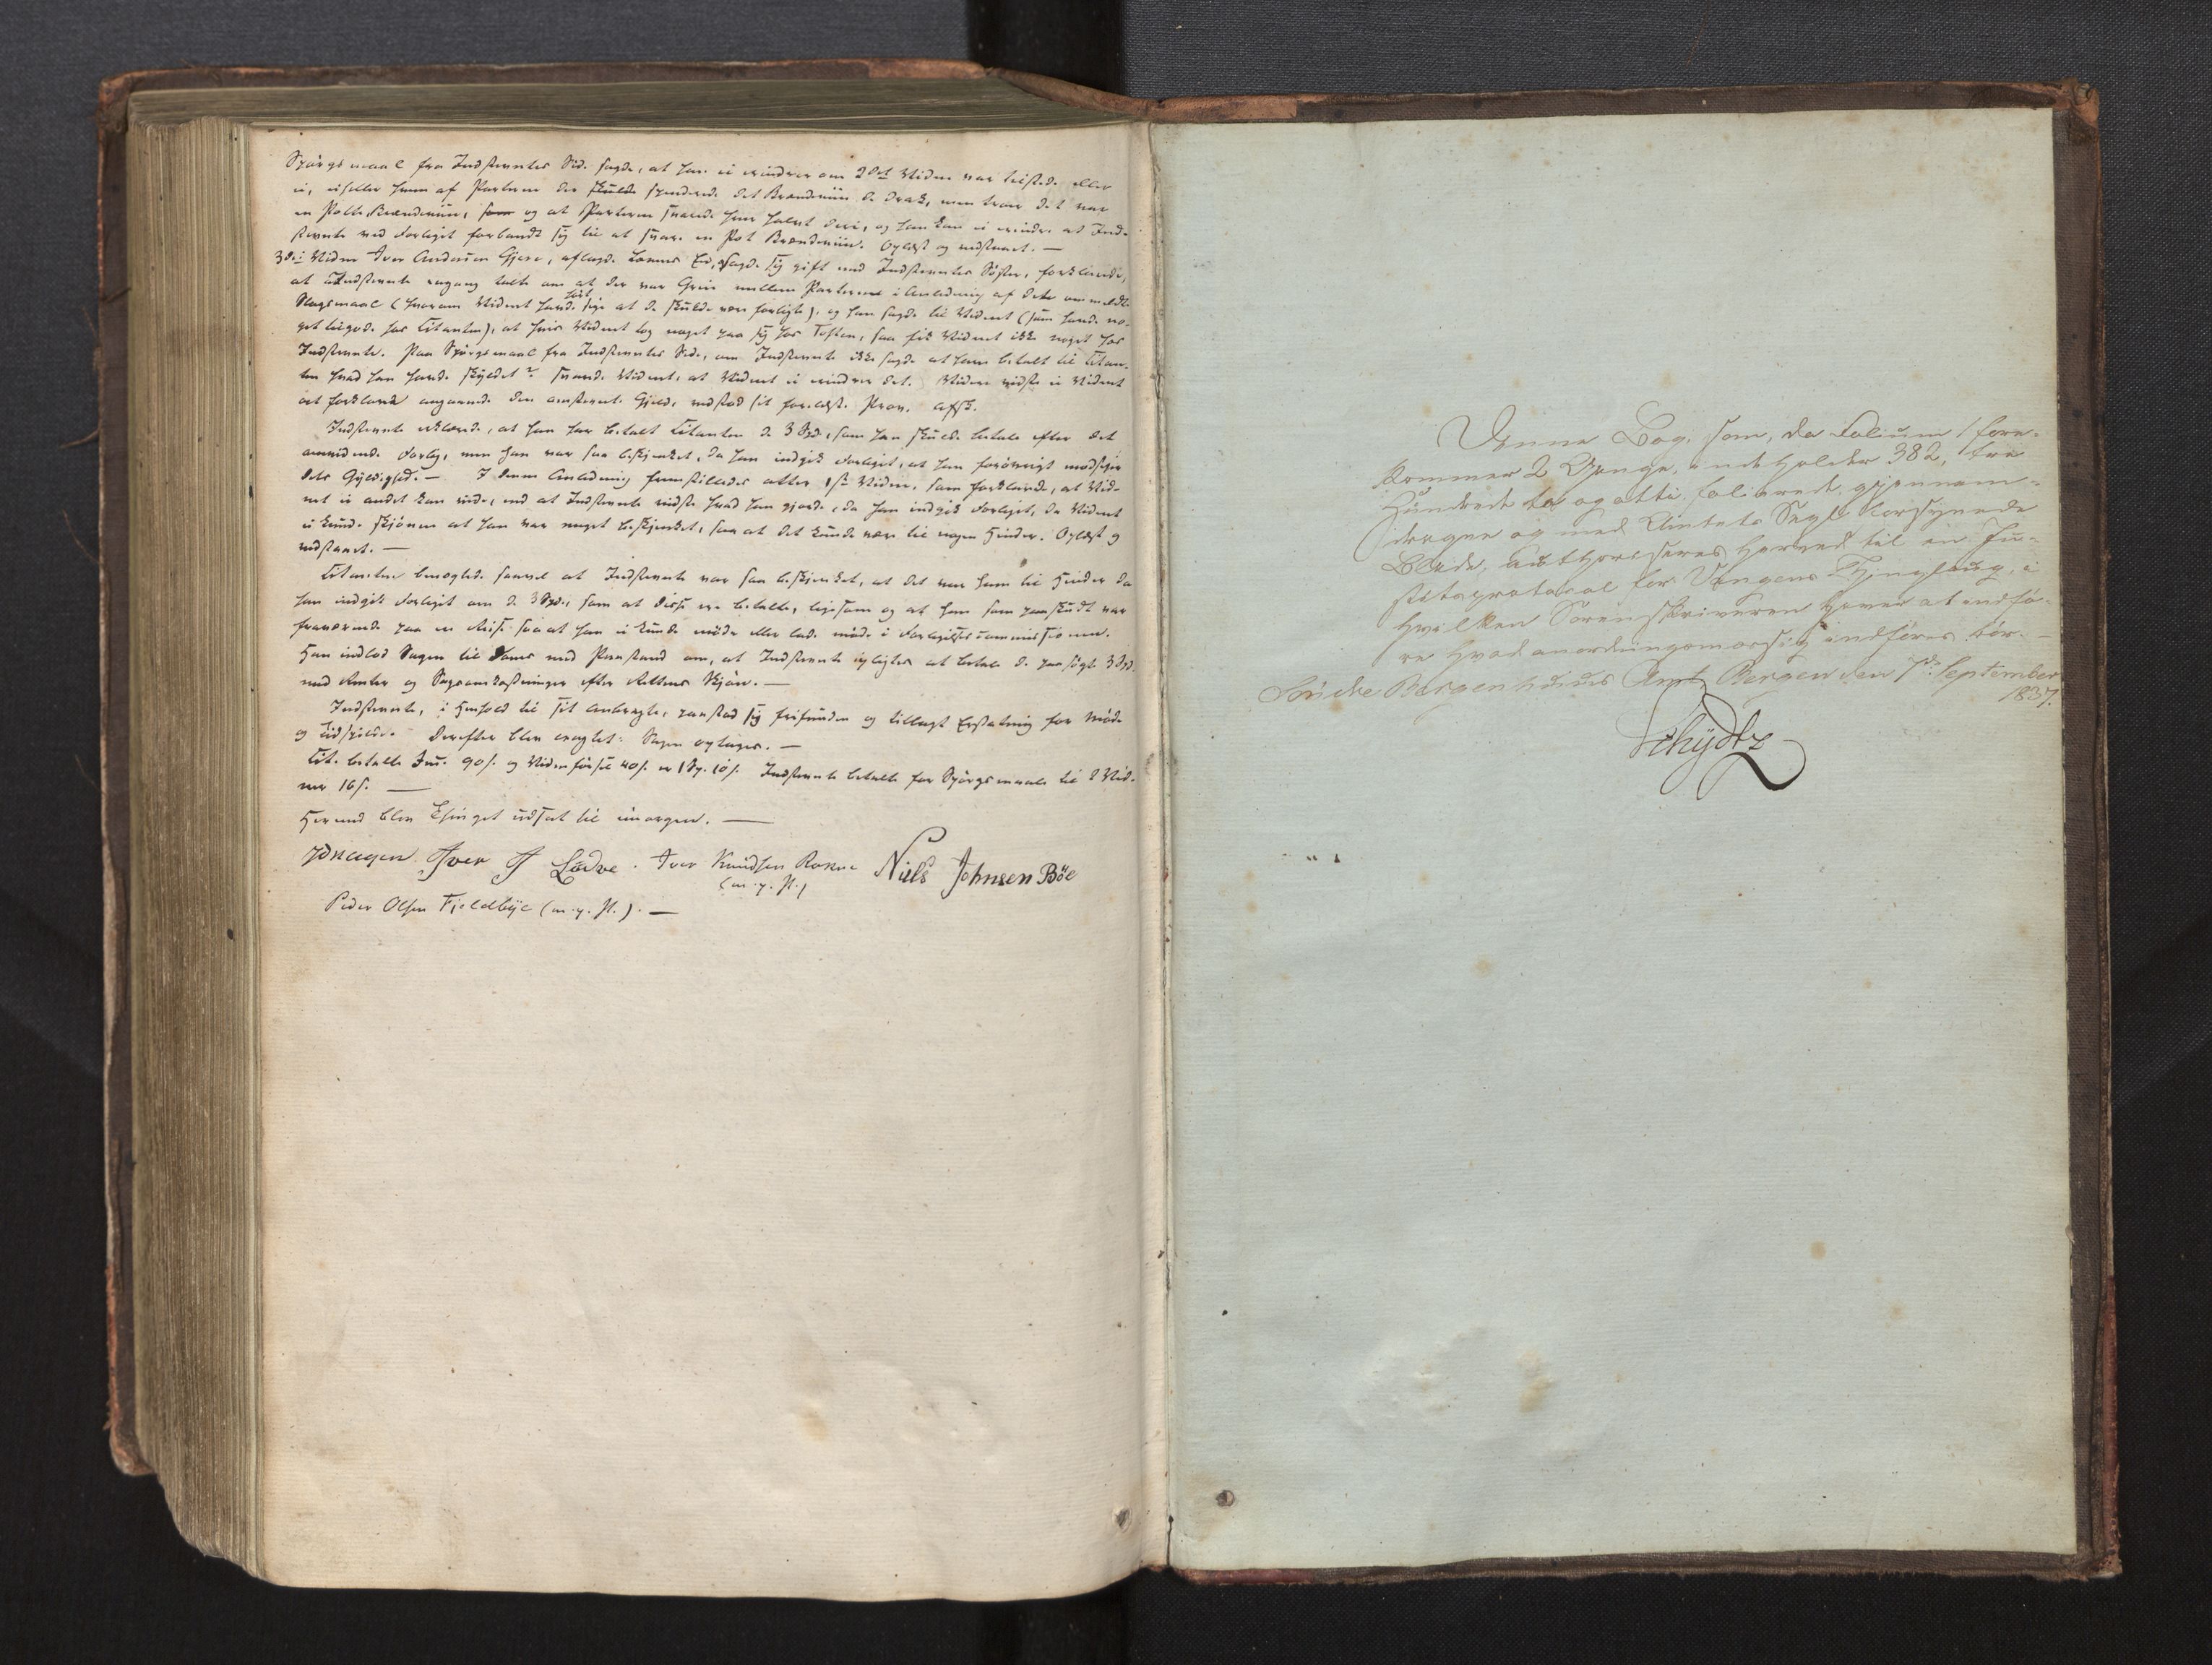 Spørgsmaal fra Indstevntes Side sagde, at han ei erindrer om 2det Vidne var tilstede eller
ei, eiheller hvem af Parterne der skulde spendere det Brændeviin de drak, men troer det var
en Potte Brændeviin, som og at Parterne svarede hver halvt deri, og han kan ei erindre at Ind-
stevnte ved Forliget forbandt sig til at svare en Pot Brændeviin. Oplæst og vedstaaet. —
3die Vidne Iver Andersen Gjere, aflagde Lovens Ed, sagde sig gift med Indstevntes Søster, forklarede,
at Indstevnte engang talte om at der var Greie mellem Parterne i Anledning af dette ommeldte
Slagsmaal (hvorom Vidnet havde hørt sige at de skulde være forligte), og han sagde til Vidnet (som havde no-
get tilgode hos Citanten), at hvis Vidnet tog noget paa sig hos Tosten, saa fik Vidnet ikke noget hos
Indstevnte. Paa Spørgsmaal fra Indstevntes Side, om Indstevnte ikke sagde at have betalt til Citan-
ten hvad han havde skyldet? svarede Vidnet, at Vidnet ei erindrer det. Videre vidste ei Vidnet
at forklare angaaende den omstevnte Gjeld, vedstod sit forelæste Prov. Afsk.
Indstevnte erklærede, at han har betalt Citanten de 3 Spd., som han skulde betale efter det
omvidnede Forlig, men han var saa beskjenket, da han indgik Forliget, at han forøvrigt modsiger
dets Gyldighed. — I denne Anledning fremstilledes atter 1ste Vidne, som forklarede, at Vid-
net ei andet kan vide, end at Indstevnte vidste hvad han gjorde, da han indgik Forliget, da Vidnet
ei kunde skjønne at han var noget beskjenket, saa at det kunde være til nogen Hinder. Oplæst og
vedstaaet. —
Citanten benegtede saavel at Indstevnte var saa beskjenket, at det var ham til Hinder da
han indgik Forliget om de 3 Spd., som at disse ere betalte, ligesom og at han som paaskudt var
fraværende paa en Reise saa at han ei kunde møde eller lade møde i Forligelsescommissionen.
Han indlod Sagen til Doms med Paastand om, at Indstevnte tilpligtes at betale de paasøgte 3 Spd.
med Renter og Sagsomkostninger efter Rettens Skjøn. —
Indstevnte, i Henhold til sit Anbragte, paastod sig frifunden og tillagt Erstatning for Møde
og Tidsspilde. Derefter blev eragtet: Sagen optages. —
Cit. betalte Inc. 90 s. og Vidneførsel 40 s. er 1 Sp. 10 s. Indstevnte betalte for Spørgsmaale til 2 Vid-
ner 16 s. —
Hermed blev Thinget udsat til imorgen. —
Iver I Lødve. Iver Knudsen Rokne Niels Johnsen Böe
(m. p. P.)
Peder Olsen Fjeldbye (m. p. P.). —
Denne Bog, som, da Folium 1 fore-
kommer 2 Gange, indeholder 382, tre
Hundrede to og otti, folierede, gjennem-
dragne og med Amtets Segl forsynede
Blade, authoriseres herved til en Ju-
stitsprotocol for Vangens Thinglaug, i
hvilken Sorenskriveren haver at indfø-
re hvad anordningsmæssig indføres bør. —
Søndre Bergenhuus Amt, Bergen den 7de September
1837.
Schydtz